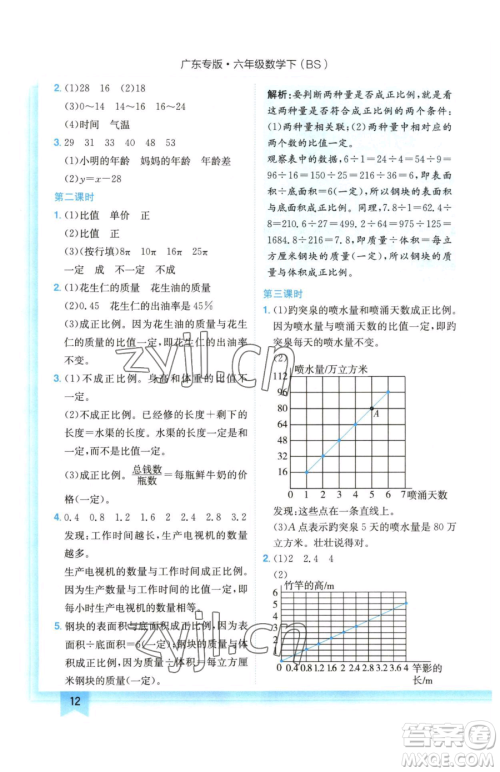 广东专版·六年级数学下(BS)
2. (1)28 16 (2)18
(3)0～14 14～16 16～24
(4)时间 气温
3. 29 31 33 40 48 53
(1)小明的年龄 妈妈的年龄 年龄差
(2)y=x-28
第二课时
1. (1)比值 单价 正
(2)比值 正
(3)(按行填)8π 10π 16π 25π
一定 成 不一定 不成
2. (1)花生仁的质量 花生油的质量
(2)0.45 花生仁的出油率 45%
(3)成正比例。因为花生油的质量与花生
仁的质量的比值一定,即花生仁的出油率
不变。
3. (1)不成正比例。身高和体重的比值不
一定。
(2)不成正比例。已经修的米数+剩下的
米数=水渠的长度(一定),水渠的长度一
定,而不是比值一定。
(3)成正比例。总钱数/瓶数=每瓶鲜牛奶的价
格(一定)。
4. 0.4 0.8 1.2 1.6 2 2.4 2.8
发现:工作时间越长,生产电视机的数量
越多。
生产电视机的数量与工作时间成正比例。
因为生产电视机的数量与工作时间的比
值一定,生产电视机的数量÷工作时间=
每小时生产电视机的数量(一定),即
每小时生产电视机的数量相等。
5. 钢块的表面积与底面积成正比例,因为表
面积÷底面积=6(一定);钢块的质量与
体积成正比例,因为质量÷体积=每立方厘
米钢块的质量(一定)。
12
解析:要判断两种量是否成正比例,就
看这两种量是否符合成正比例的两个条件:
(1)两种量相关联;(2)两种量中相对应的
两个数的比值一定。
观察表中的数据,6÷1=24÷4=54÷9=
96÷16=150÷25=216÷36=6,即表面
积÷底面积=6(一定),所以钢块的表面积
与底面积成正比例。同理,7.8÷1=62.4÷
8=210.6÷27=499.2÷64=975÷125=
1684.8÷216=7.8,即质量÷体积=每立
方厘米钢块的质量(一定),所以钢块的质
量与体积成正比例。
第三课时
1. (1)趵突泉的喷水量和喷涌天数成正比例。
因为喷水量与喷涌天数的比值一定,即趵
突泉每天的喷水量不变。
(2)
喷水量/万立方米
112
96
80
64
48
32
16
A
0 1 2 3 4 5 6 7 喷涌天数
发现:这些点在一条直线上。
(3)A点表示趵突泉5天的喷水量是80
万立方米。壮壮说得对。
2. (1)2 2.4 4
(2)
竹竿的高/m
6
5
4
3
2
1
0 0.4 0.8 1.2 1.6 2 2.4 2.8 3.2 3.6 4 竹影的
长/m
zyjl.cn
zyjl.cn
答案圈
MXQE.COM